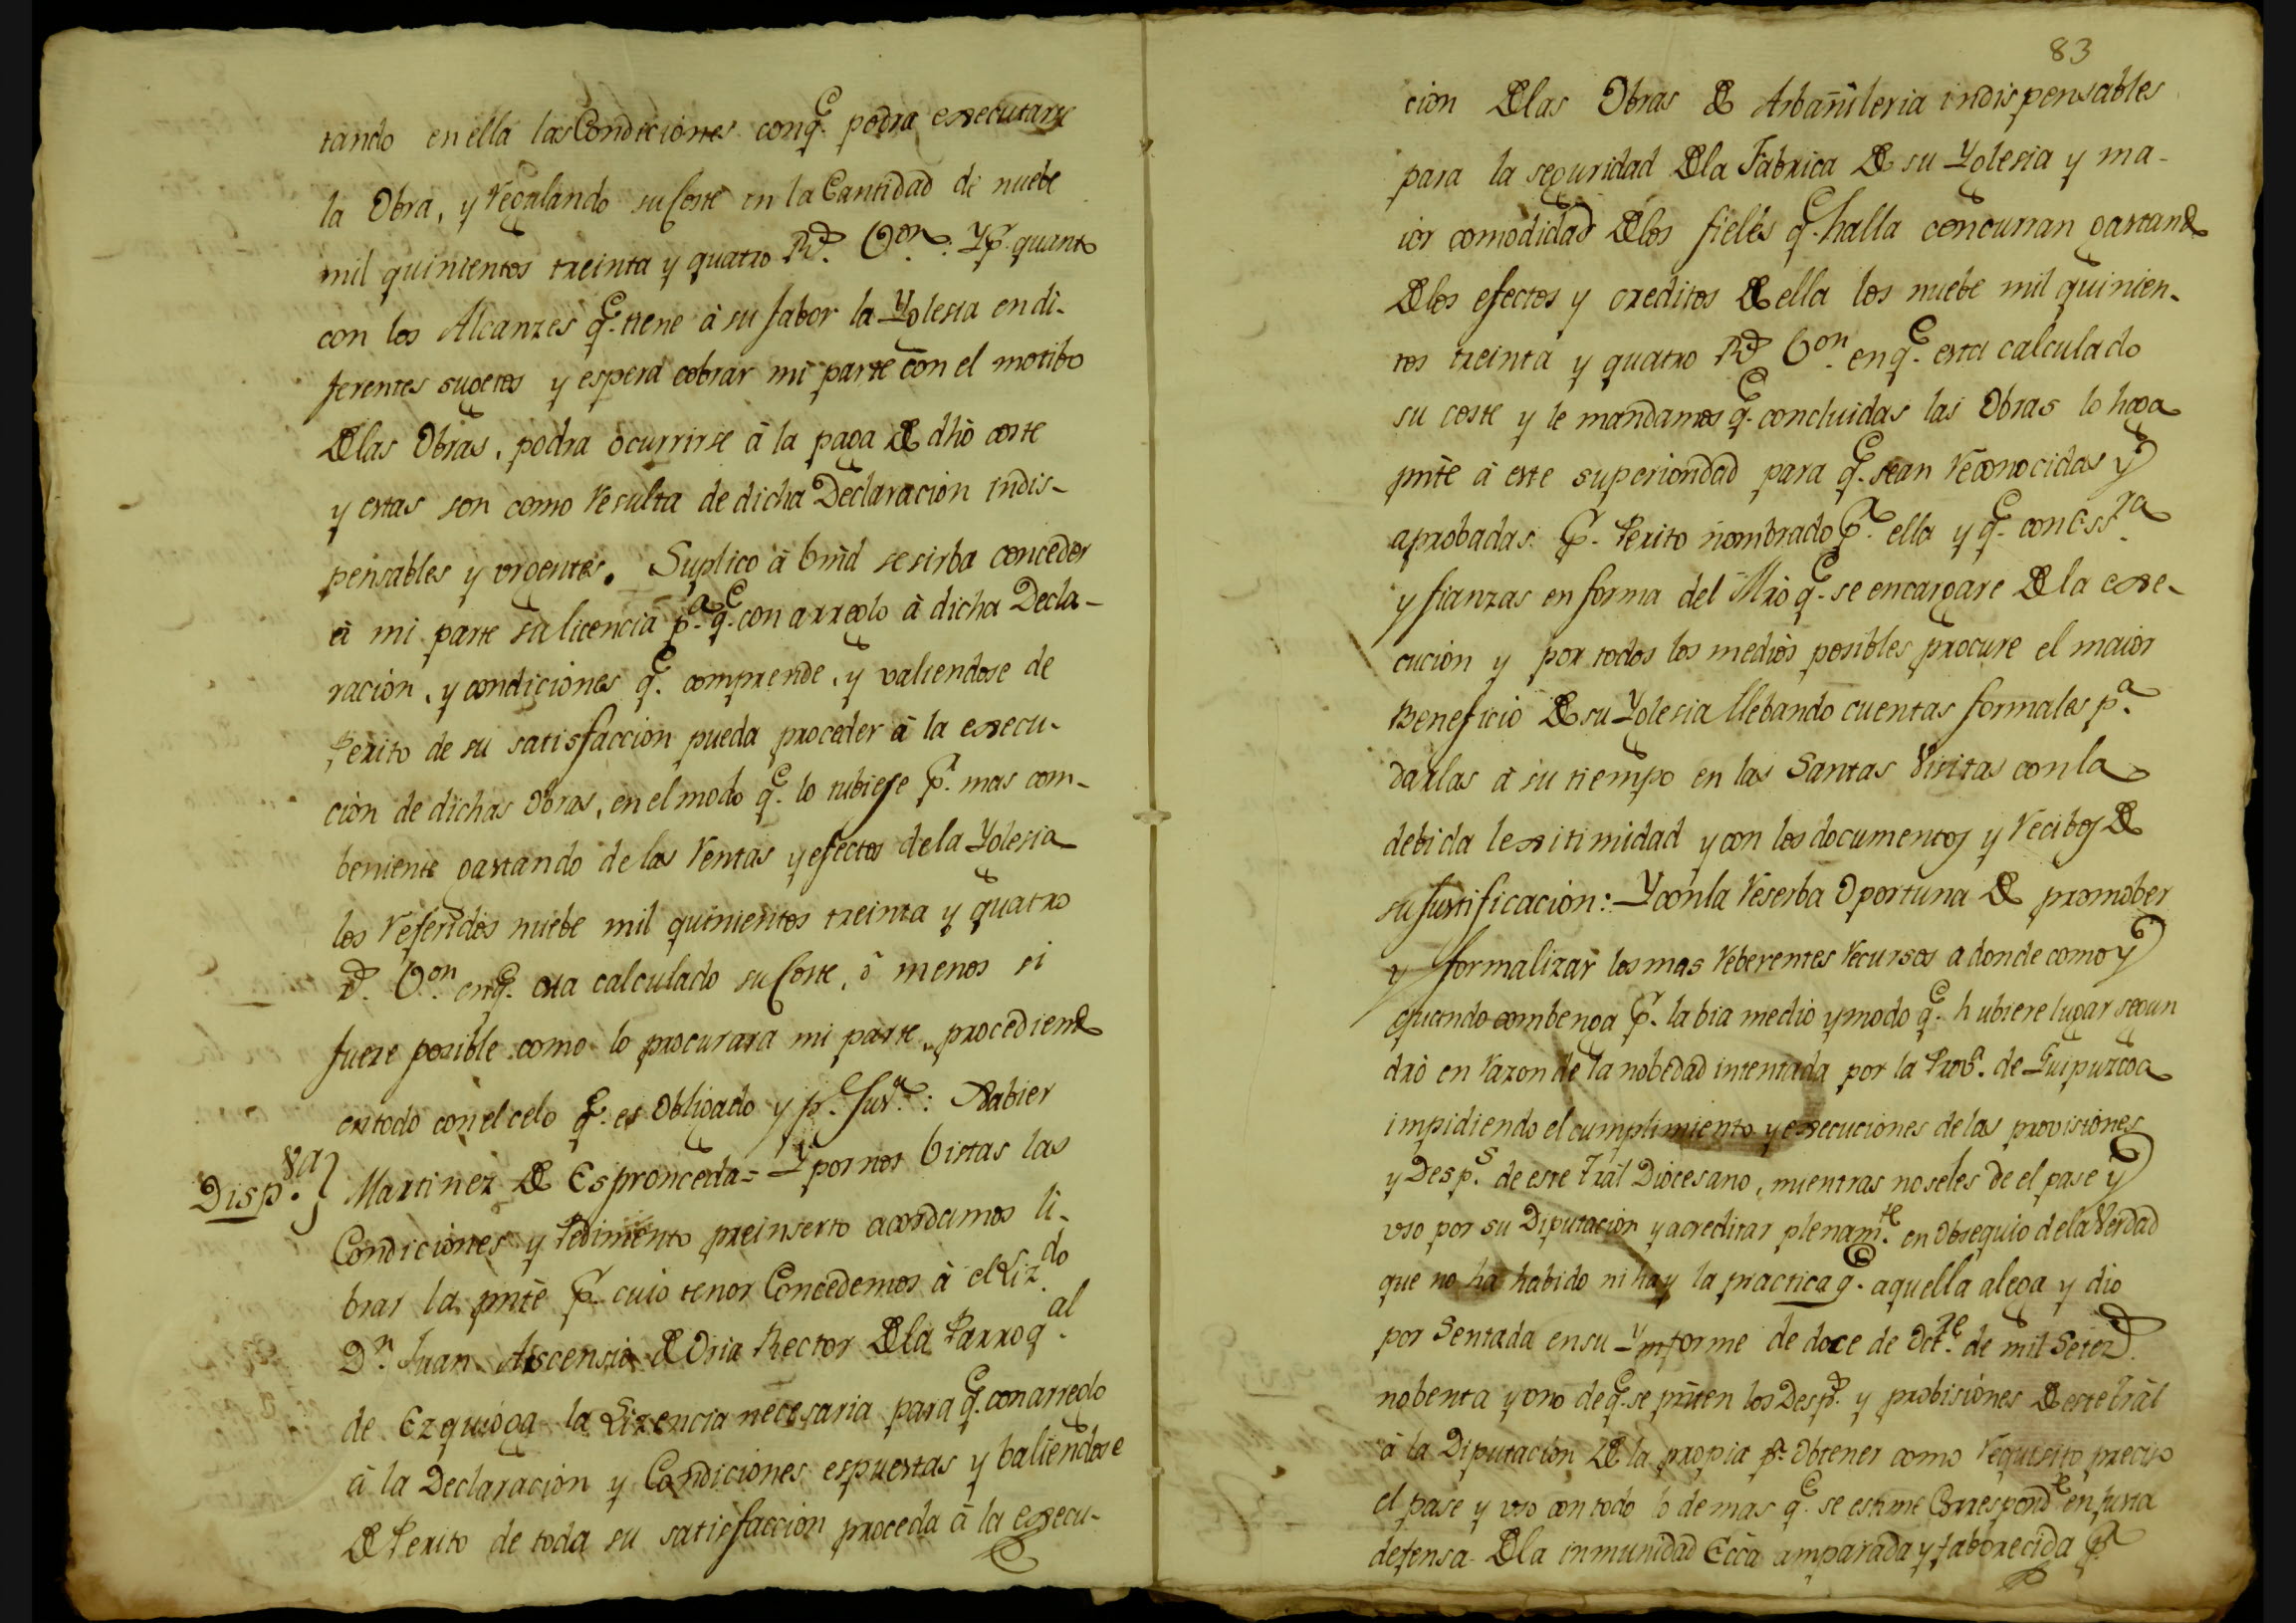 tando en ella las Condiciones conq.e podra executarse
la Obra, y Regulando su Coste en la Cantidad de nuebe
mil quinientos treinta y quatro R.s V.on: Y p.r quanto
con los Alcanzes q.e tiene à su fabor la Yglesia en di-
ferentes sugetos y espera cobrar mi parte con el motibo
delas Obras, podra ocurrirse à la paga de dhò coste
y estas son como Resulta de dicha Declaracion indis-
pensables y urgentes. Suplico à Vmd se sirba conceder
à mi parte su licencia p.a q.e con arreglo à dicha Decla-
racion, y condiciones q.e comprende, y valiendose de
Perito de su satisfaccion pueda proceder à la execu-
cion de dichas Obras, en el modo q.e lo tubiese p.r mas com-
beniente gastando de las Rentas y efectos dela Yglesia
los Referidos nuebe mil quinientos treinta y quatro
r.s V.on enq.e esta calculado su Coste, ò menos si
fuere posible como lo procurara mi parte, procediendo
en todo con el celo q.e es Obligado y p.r Jus.a: Xabier
Disp.va} Martinez de Espronceda = Y por nos bistas las
Condiciones y Pedimento preinserto acordamos li-
brar la pntè p.r cuio tenor Concedemos à el Liz.do
D.n Juan Ascensio de Oria Rector dela Parroq.al
de Ezquioga la Lizencia necesaria para q.e con arreglo
à la Declaracion y Condiciones espuestas y baliendose
de Perito de toda su satisfaccion proceda à la execu-
83
cion delas Obras de Arbañileria indispensables
para la seguridad dela Fabrica de su Yglesia y ma-
ior comodidad delos fieles q.e halla concurran gastando
delos efectos y creditos de ella los nuebe mil quinien-
tos treinta y quatro R.s V.on enq.e esta calculado
su coste y le mandamos q.e concluidas las Obras lo haga
pntè à este superioridad para q.e sean Reconocidas y
aprobadas p.r Perito nombrado p.r ella y q.e con Ess.ra
y fianzas en forma del Mrò q.e se encargare dela exe-
cucion y por todos los medios posibles procure el maior
Beneficio de su Yglesia llebando cuentas formales p.a
darlas à su tiempo en las Santas Visitas con la
debida lexitimidad y con los documentos y Recibos de
su Justificacion: Y con la Reserba Oportuna de promober
y formalizar los mas Reberentes Recursos a donde como y
quando combenga p.r la bia medio y modo q.e hubiere lugar segun
drò en Razon de la nobedad intentada por la Prob.a de Guipuzcoa
impidiendo el cumplimiento y execuciones de las provisiones
y Desp.s de este Tràl Diocesano, mientras no seles de el pase y
uso por su Diputacion y acreditar plenam.te en Obsequio dela Verdad
que no ha habido ni hay la practica q.e aquella alega y dio
por Sentada en su Ynforme de doce de Oct.re de mil Setez.s
nobenta y uno de q.e se pnten los Desp.s y probisiones de este Tràl
à la Diputacion de la propia p.a Obtener como Requisito preciso
el pase y uso con todo lo demas q.e se estime Correspond.te en justa
defensa dela inmunidad Eccà amparada y faborecida p.r